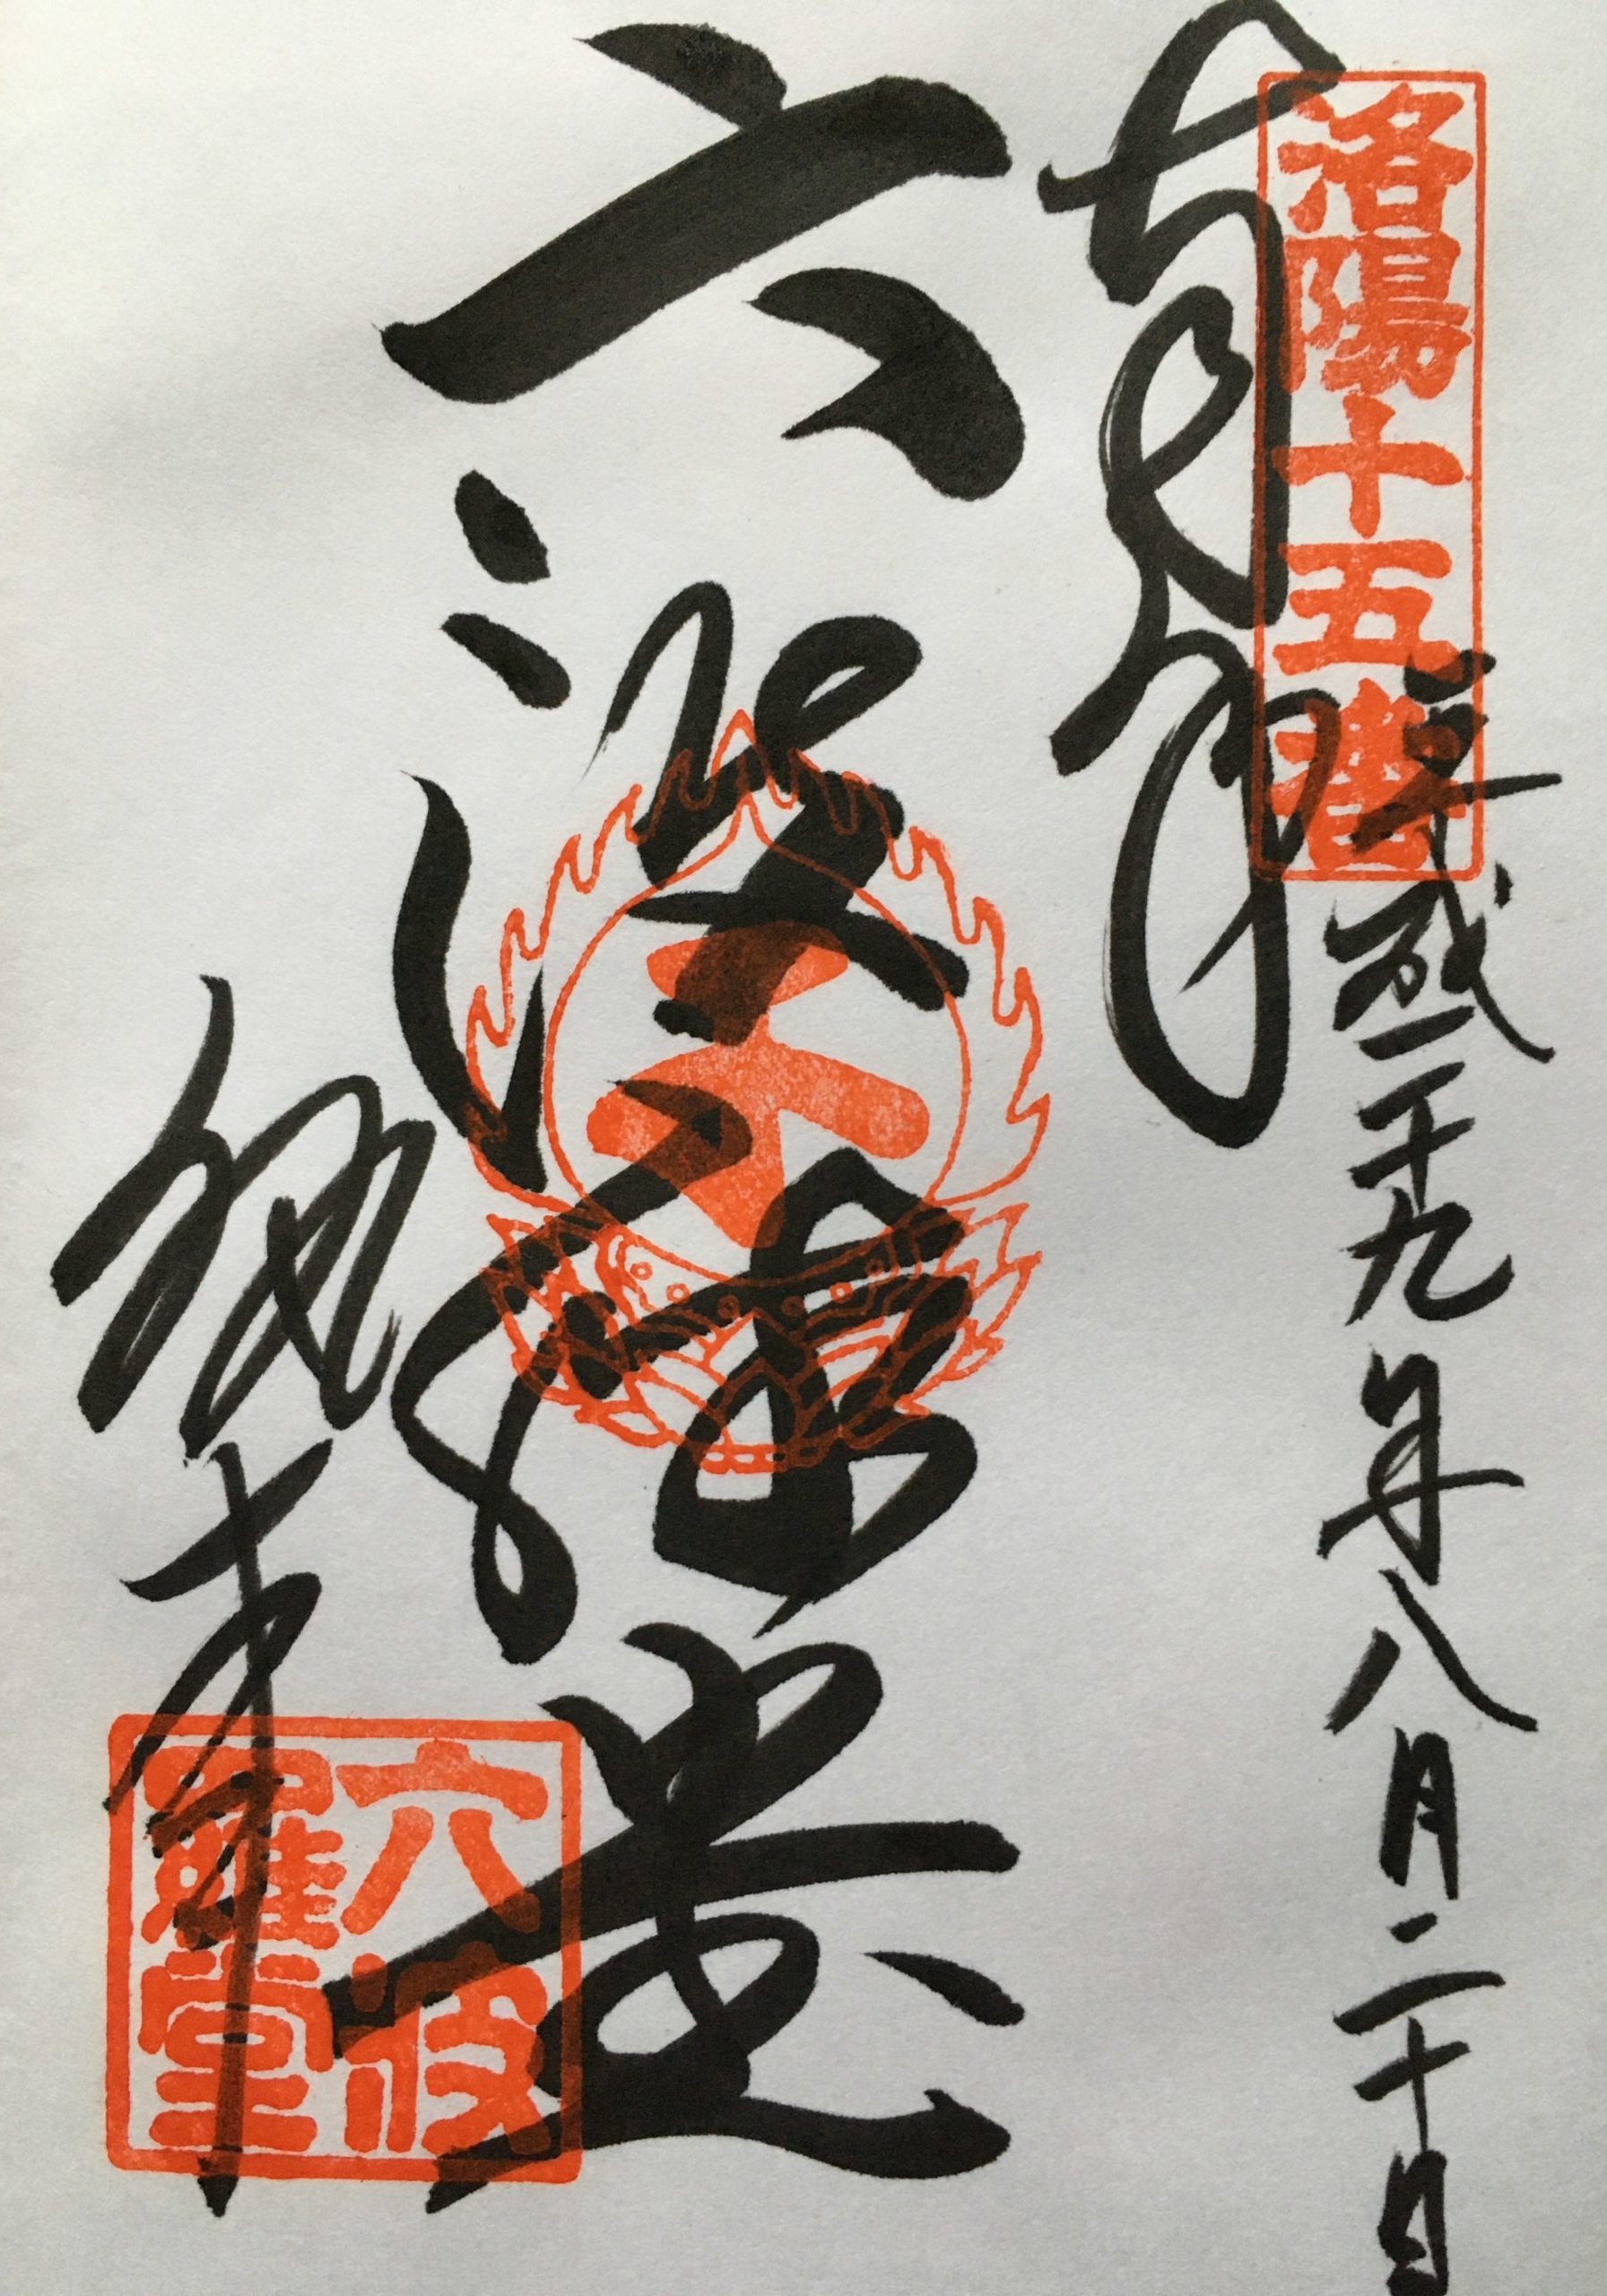 洛陽十五番
平成二十九年八月二十日
奉拝
六波羅堂
六波羅堂